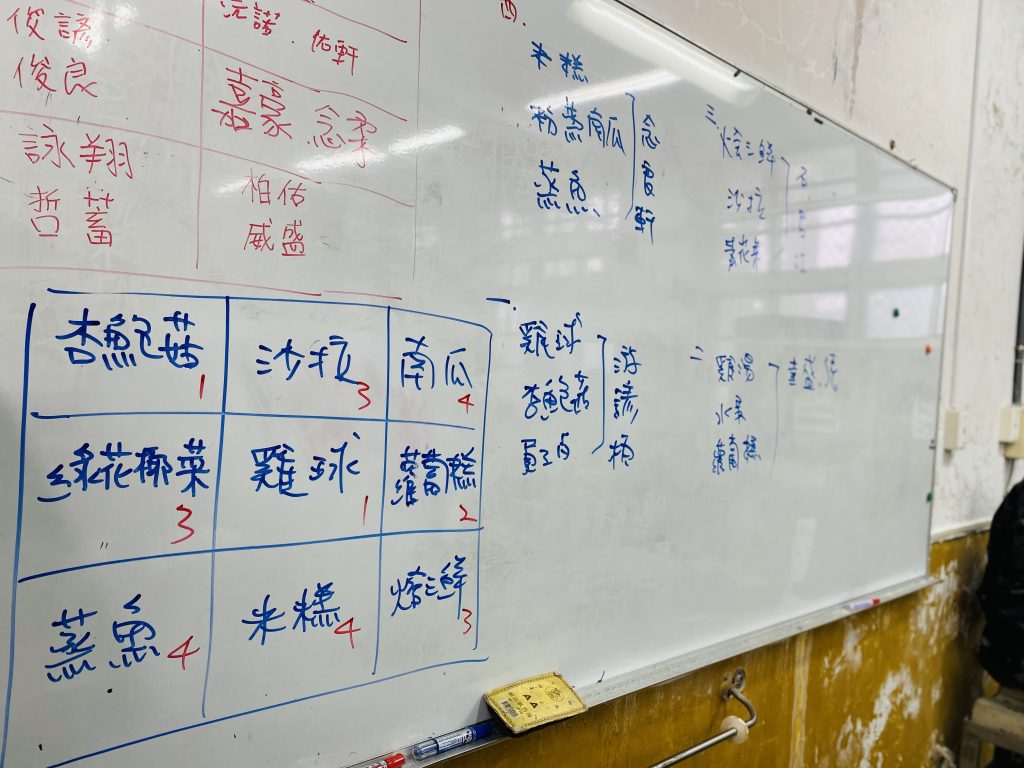 俊諺
俊良
詠翔
哲蓄
沅諾
佑軒
嘉豪 念柔
柏佑
威盛
四.
米糕
粉蒸南瓜
蒸魚
念
軒
三
燴三鮮
沙拉
杏鮑菇 1
沙拉 3
南瓜 4
綠花椰菜 3
雞球 1
蘿蔔糕 2
蒸魚 4
米糕 4
燴三鮮 3
一.
雞球
杏鮑菇
游
諺
二
雞湯
水果
蘿蔔糕
盛